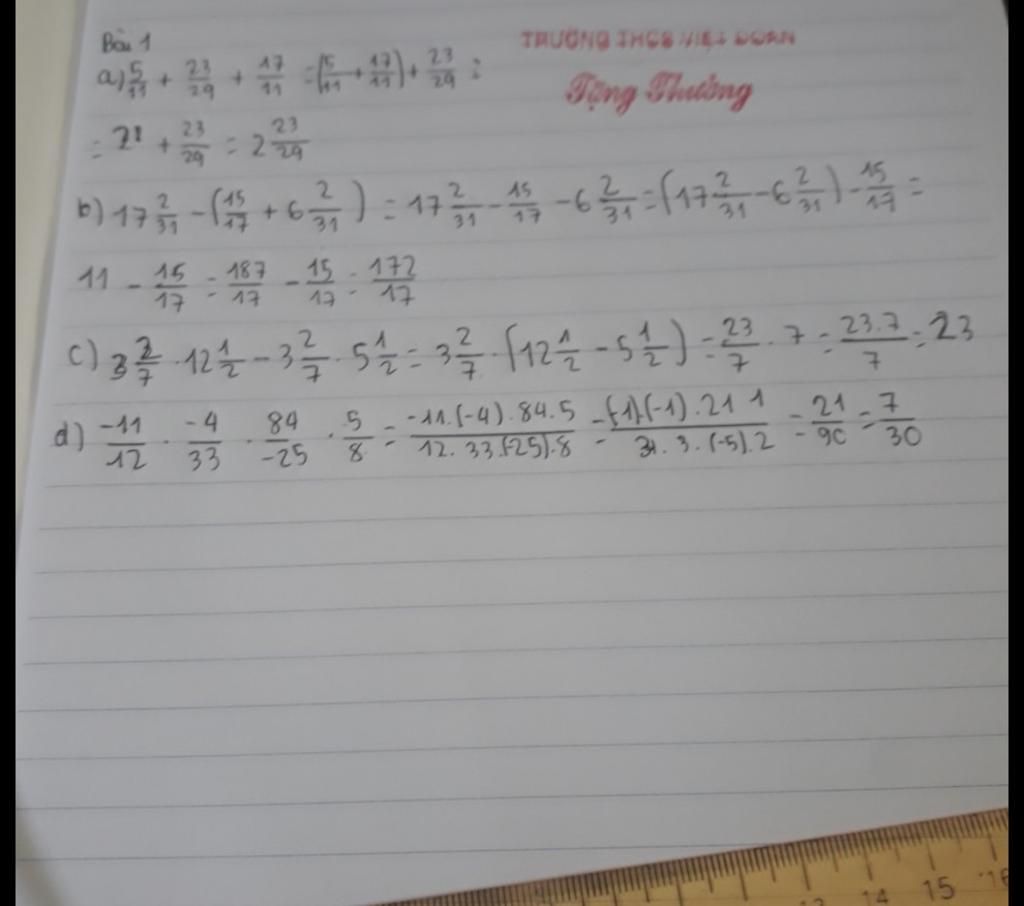 Bài 1
TRƯỜNG THCS VIỆT ĐOÀN
Tặng Thưởng
a) 5/11 + 23/29 + 17/11 = (5/11 + 17/11) + 23/29 =
= 2 + 23/29 = 2 23/29
b) 17 2/31 - (15/17 + 6 2/31) = 17 2/31 - 15/17 - 6 2/31 = (17 2/31 - 6 2/31) - 15/17 =
11 - 15/17 = 187/17 - 15/17 = 172/17
c) 3 2/7 . 12 1/2 - 3 2/7 . 5 1/2 = 3 2/7 . (12 1/2 - 5 1/2) = 23/7 . 7 = 23.7/7 = 23
d) -11/12 . -4/33 . 84/-25 . 5/8 = -11.(-4).84.5/12.33.(-25).8 = (-1).(-1).21 1/3.3.(-5).2 = 21/-90 = -7/30
13 14 15 16